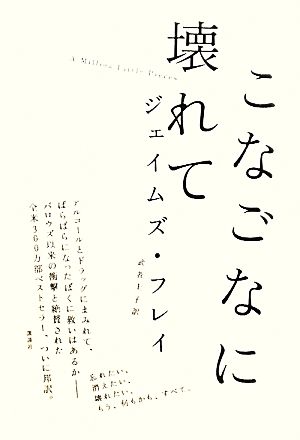 A Million Little Pieces
こなごなに
壊れて
ジェイムズ・フレイ
武者圭子 訳
アルコールとドラッグにまみれて、
ばらばらになったぼくに救いはあるか——
バロウズ以来の衝撃と絶賛された
全米360万部ベストセラー、ついに邦訳。
講談社
忘れたい、
消えたい、
壊れたい、
もう、何もかも、すべて…